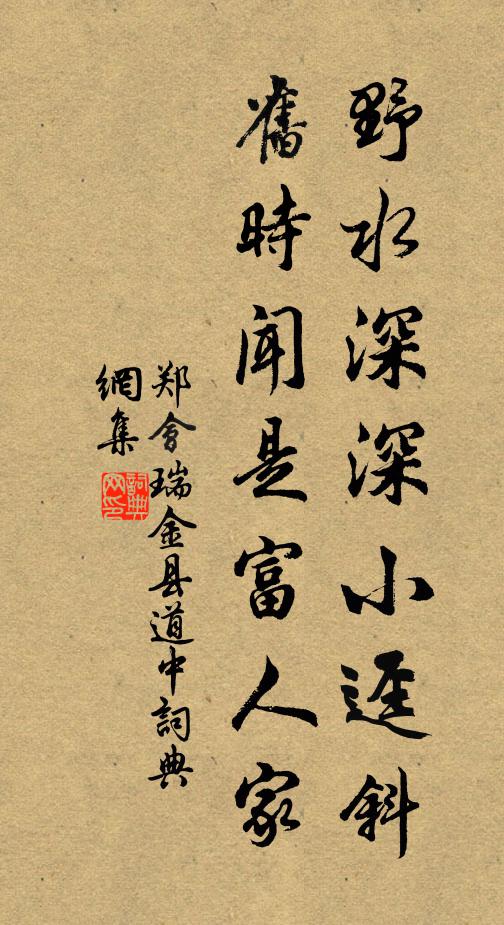 野水深深小迳斜
舊時聞是富人家
郑會瑞金县道中詞典
網集
詞典
网印